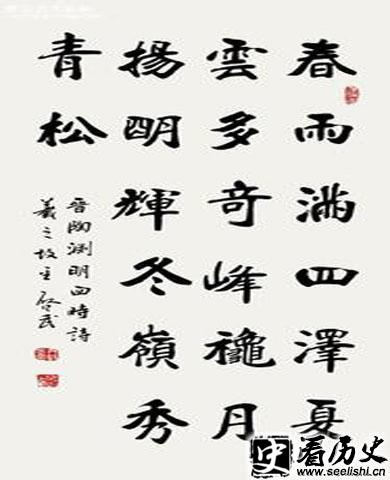 春雨滿四澤夏
雲多奇峰穐月
揚明輝冬嶺秀
青松
晉陶渊明四時詩
羲之故里
史
看历史
www.seelishi.cn